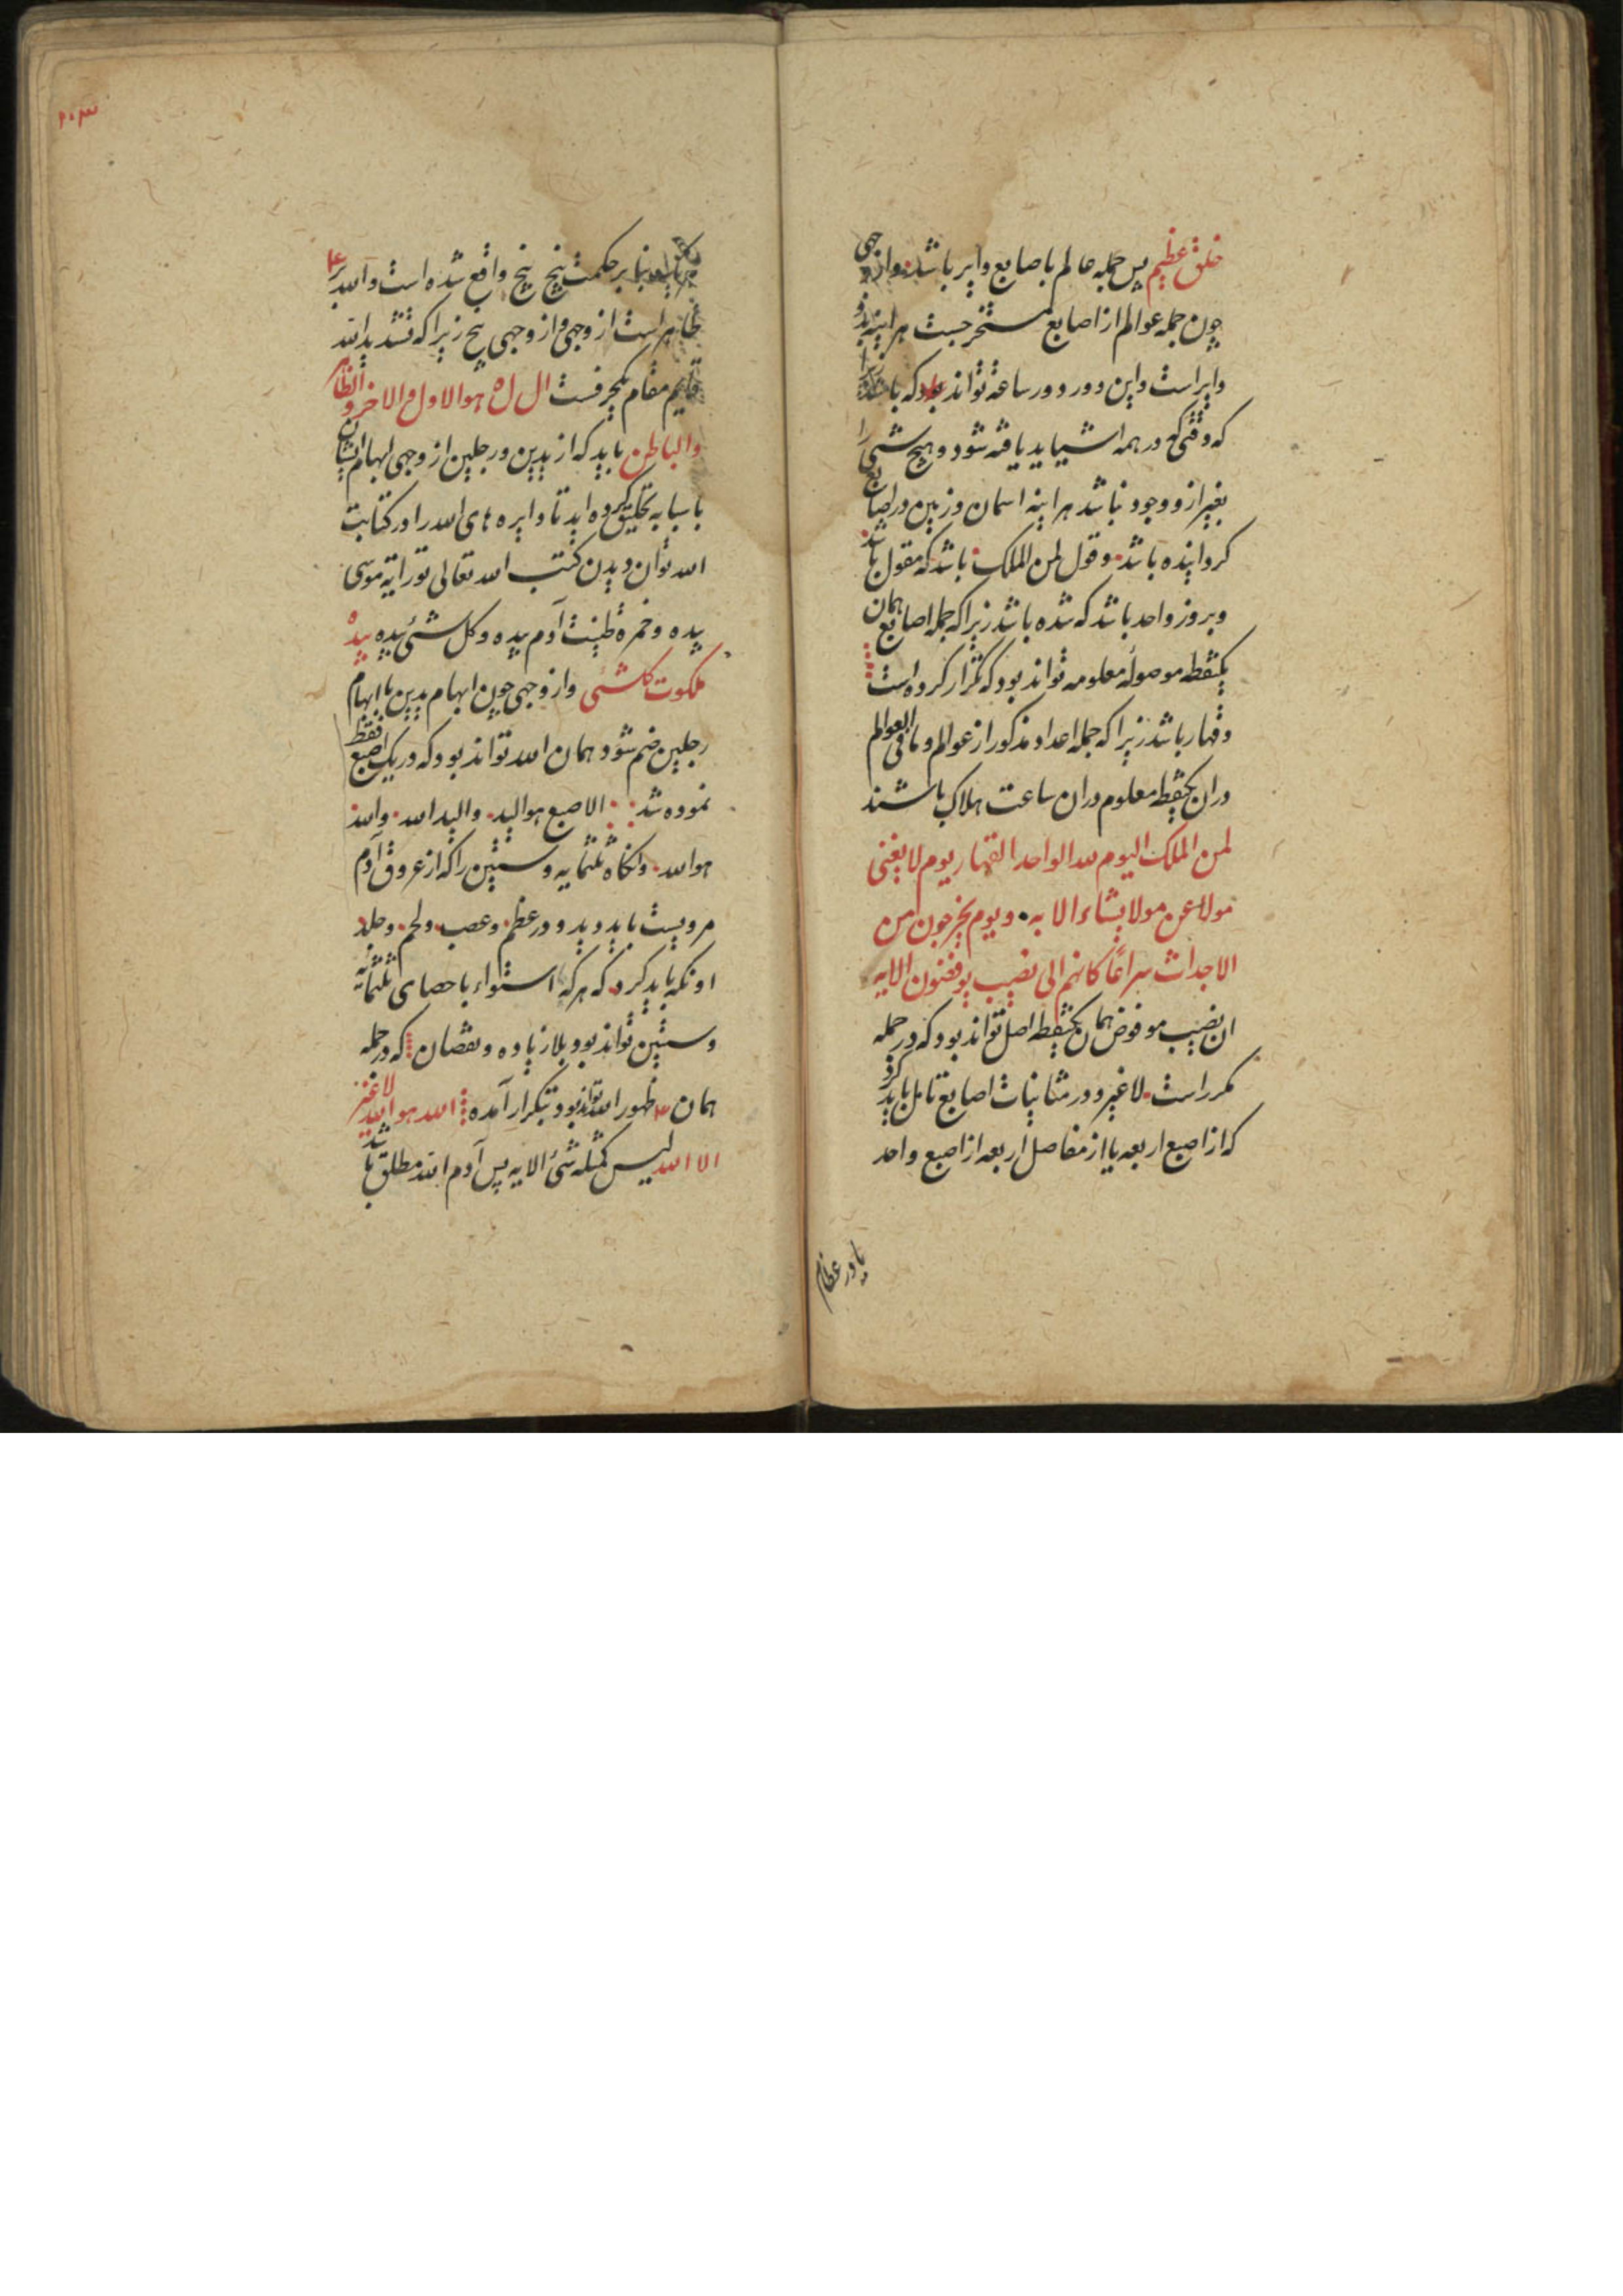 خلق عظیم پس جمله عالم باصابع دایر باشد واز وجهی
چون جمله عوالم از اصابع مستخرجست هراینه بذو
دایر است واین دور دور ساعة تواند بود که باشد زیرا
که وقتی که در همه اشیا ید یافته شود و هیچ شیٔ را
بغیر ازو وجود نباشد هراینه اسمان و زمین در اصابع
کردانیده باشد وقول لمن الملک باشد که مقول باشد
وبروز واحد باشد که شده باشد زیرا که جمله اصابع همان
یکنقطه موصوله معلومه تواند بود که تکرار کرده است
وقهار باشد زیرا که جمله اعداد مذکور از عوالم وما فی العوالم
دران یکنقطه معلوم دران ساعت هلاک باشند
لمن الملک الیوم لله الواحد القهار یوم لا یغنی
مولا عن مولا یشاء الایه ویوم یخرجون من
الاجداث سراعا کانهم الی نصب یوفضون الایه
ان نصیب موفوض همان یکنقطه اصل تواند بود که در جمله
مکرر است لاغیر ودر مثانیات اصابع تامل باید کرد
که از اصبع اربعه یا از مفاصل اربعه از اصبع واحد
یا در عظام
۲۰۳
بنابر حکمت پنج پنج واقع شده است والله بر ۴
ظاهر است از وجهی واز وجهی پنج زیرا که تشدید الله
قایم مقام یکحرفست ال ل ه هو الاول والاخر والظاهر
والباطن باید که از یدین ورجلین از وجهی ابهام ایشان
با سبابه تحلیق کرده اید تا دایره های الله را در کتابت
الله توان دیدن کتب الله تعالی توراتیة موسی
بیده وخمره طینت آدم بیده وکل شیٔ بیده بیده
ملکوت کلشیٔ واز وجهی چون ابهام یدین با ابهام
رجلین ضم شود همان الله تواند بود که در یک اصبع فقط
نموده شد الاصبع هو الید والید الله والله
هو الله وانکاه ثلثمایه وستین را که از عروق آدم
مرویست باید دید ودر عظم وعصب ولحم وجلد
او نکه باید کرد که هر که استواء باحصای ثلثمائة
وستین تواند بود بلا زیاده ونقصان که در جمله
همان ظهور الله تواند بود بتکرار آمده الله هو الله لاغیر
الا الله لیس کمثله شیٔ الایه پس آدم الله مطلق باشد